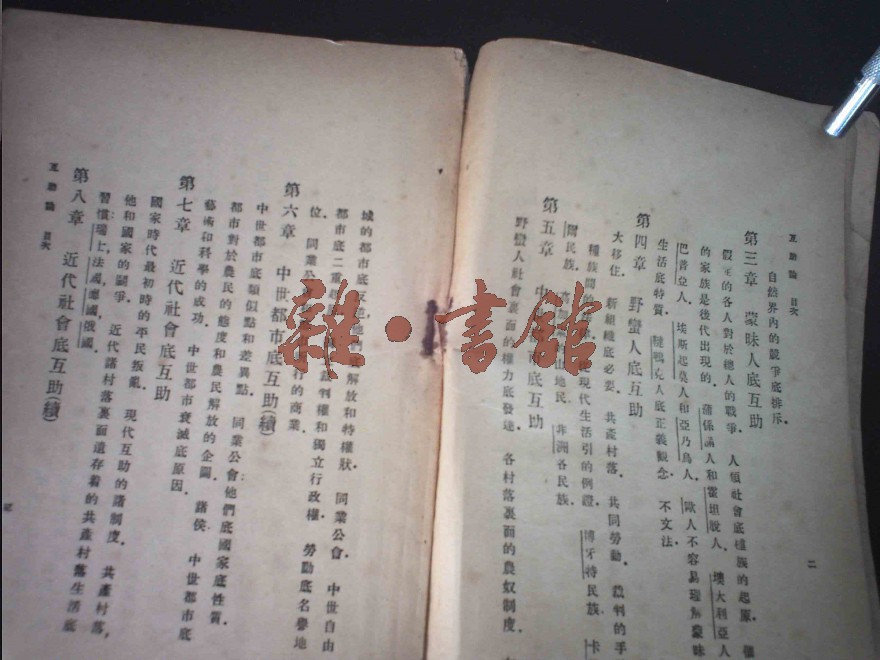 互助論 目次
自然界內的競爭底排斥。
第三章 蒙昧人底互助
假定的各人對於總人的戰爭。 人類社會底種族的起原。
的家族是後代出現的。 蒲係滿人和霍坦脫人。 墺大利亞人
巴普亞人。 埃斯起莫人和亞乃烏人。 歐人不容易理解蒙昧
生活底特質。 人底正義觀念。 不文法。
第四章 野蠻人底互助
大移住。 新組織底必要。 共產村落。 共同勞動。 裁判的手
種族間 現代生活引的例證。 民族。 卡
民族。 山地民。 非洲各民族。
第五章 中 市底互助
野蠻人社會裏面的權力底發達。 各村落裏面的農奴制度。
二
城的都市底反 他們 解放和特權狀。 同業公會。 中世自由
都市底二重 裁判權和獨立行政權。 勞動底名譽地
位。 同業公 行的商業。
第六章 中世都市底互助(續)
中世都市底類似點和差異點。 同業公會：他們底國家底性質。
都市對於農民的態度和農民解放的企圖。 諸侯。 中世都市底
藝術和科學的成功。 中世都市衰滅底原因。
第七章 近代社會底互助
國家時代最初時的平民叛亂。 現代互助的諸制度。 共產村落，
他和國家的鬭爭。 近代諸村落裏面遺存着的共產村落生活底
習慣：瑞士，法國，德國，俄國。
第八章 近代社會底互助(續)
互助論 目次
雜·書館